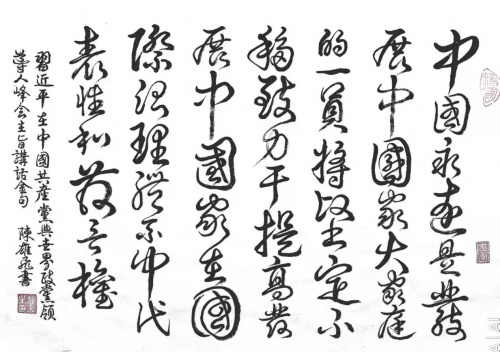 中國永遠是發
展中國家大家庭
的一員將堅定不
移致力于提高發
展中國家在國
際治理體系中代
表性和發言權
習近平在中國共產黨與世界政黨領
導人峰會主旨講話金句 陳雄飛書